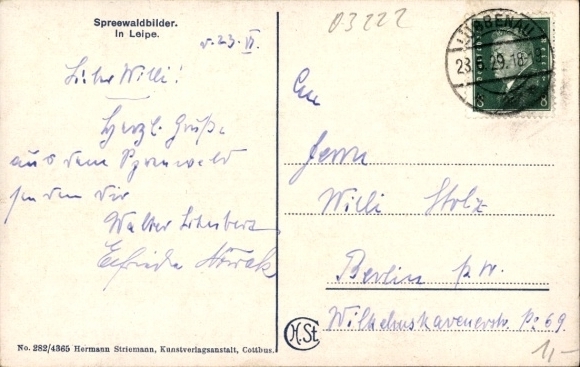 Spreewaldbilder.
In Leipe.
03222
d. 23. VI.
Lieber Willi!
Herzl. Grüße
aus dem Spreewald
senden Dir
Walter
Elfriede Nowak
LÜBBENAU
23.6.29.18
DEUTSCHES REICH
8 8
An
Herrn
Willi Stolz
Berlin
Wilhelmshavenerstr. 69.
H.St
No. 282/4365 Hermann Striemann, Kunstverlagsanstalt, Cottbus.
1,-